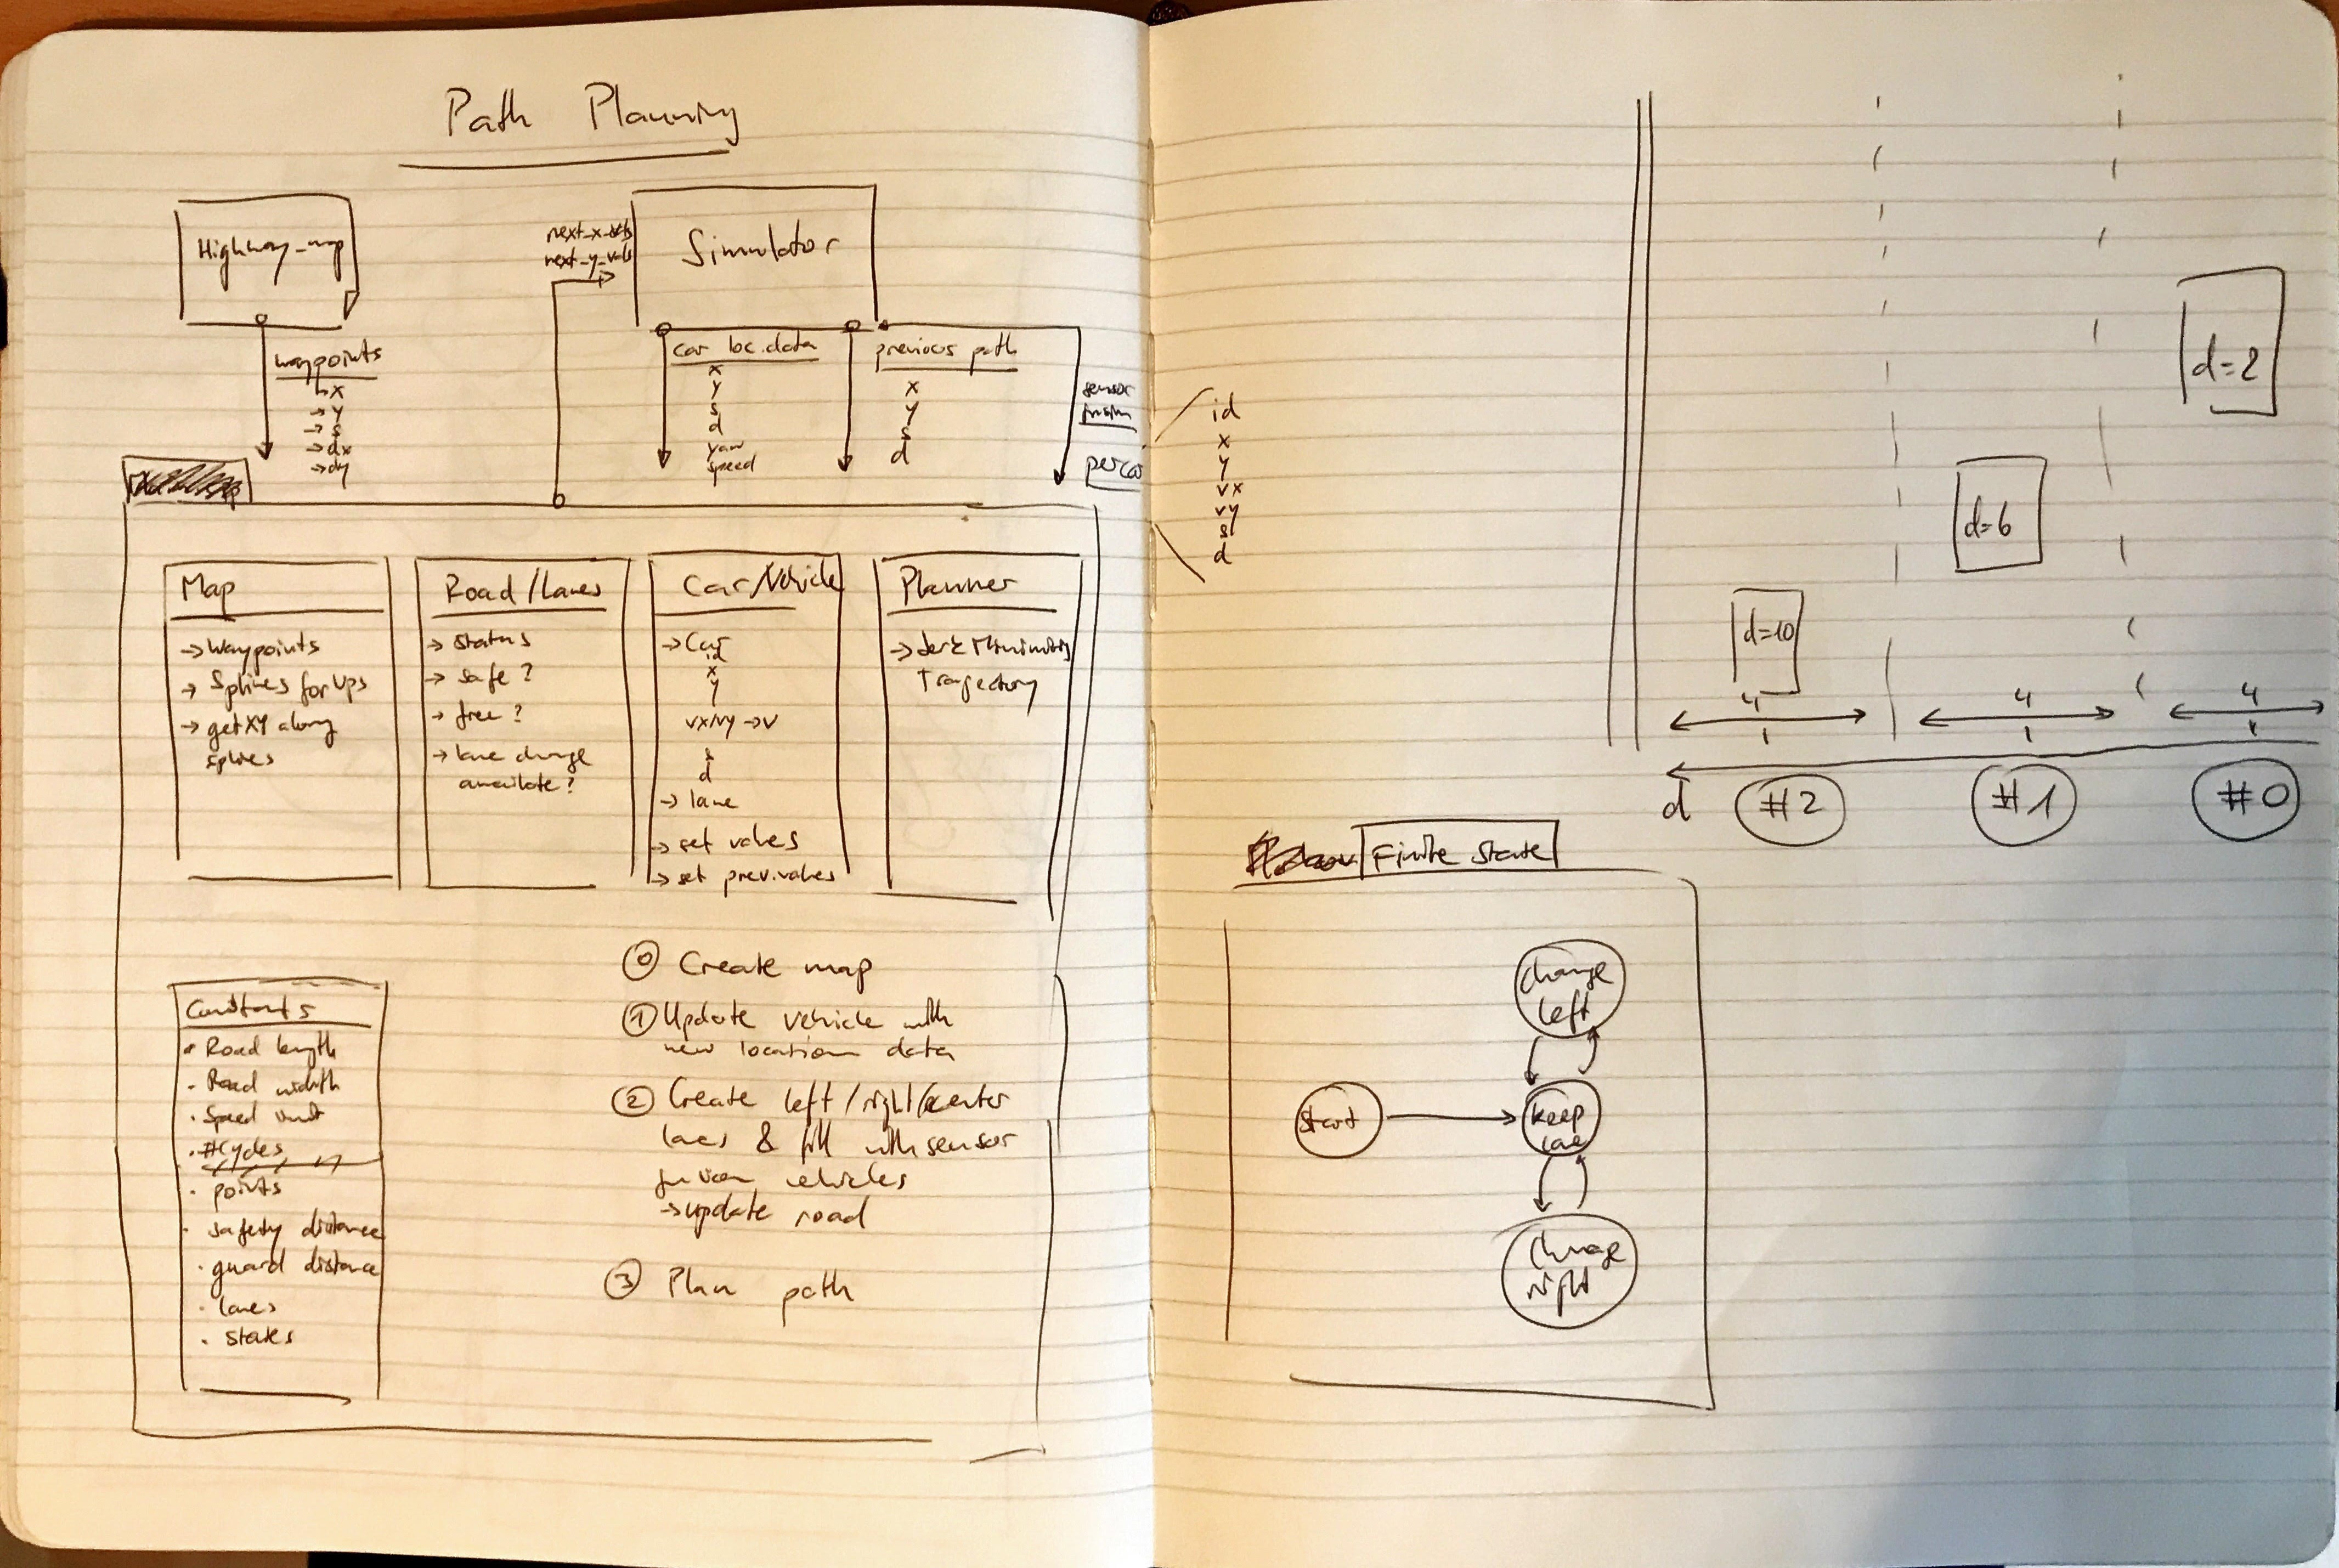 Path Planning
Highway_map
next_x_vals
next_y_vals
Simulator
waypoints
→x
→y
→s
→dx
→dy
car loc.data
x
y
s
d
yaw
speed
previous path
x
y
s
d
sensor
fusion
per car
id
x
y
vx
vy
s
d
Map
→ Waypoints
→ Splines for WPs
→ getXY along
splines
Road/Lanes
→ status
→ safe?
→ free?
→ lane change
available?
Car/Vehicle
→ Car
id
x
y
vx/vy → v
s
d
→ lane
→ set values
→ set prev.values
Planner
→ Jerk Minimizing
Trajectory
Constants
· Road length
· Road width
· Speed limit
· #Cycles
· points
· safety distance
· guard distance
· lanes
· states
0 Create map
1 Update vehicle with
new location data
2 Create left/right/center
lanes & fill with sensor
fusion vehicles
→ update road
3 Plan path
d=2
d=6
d=10
4 4 4
d #2 #1 #0
Finite State
change
left
Start
keep
lane
change
right